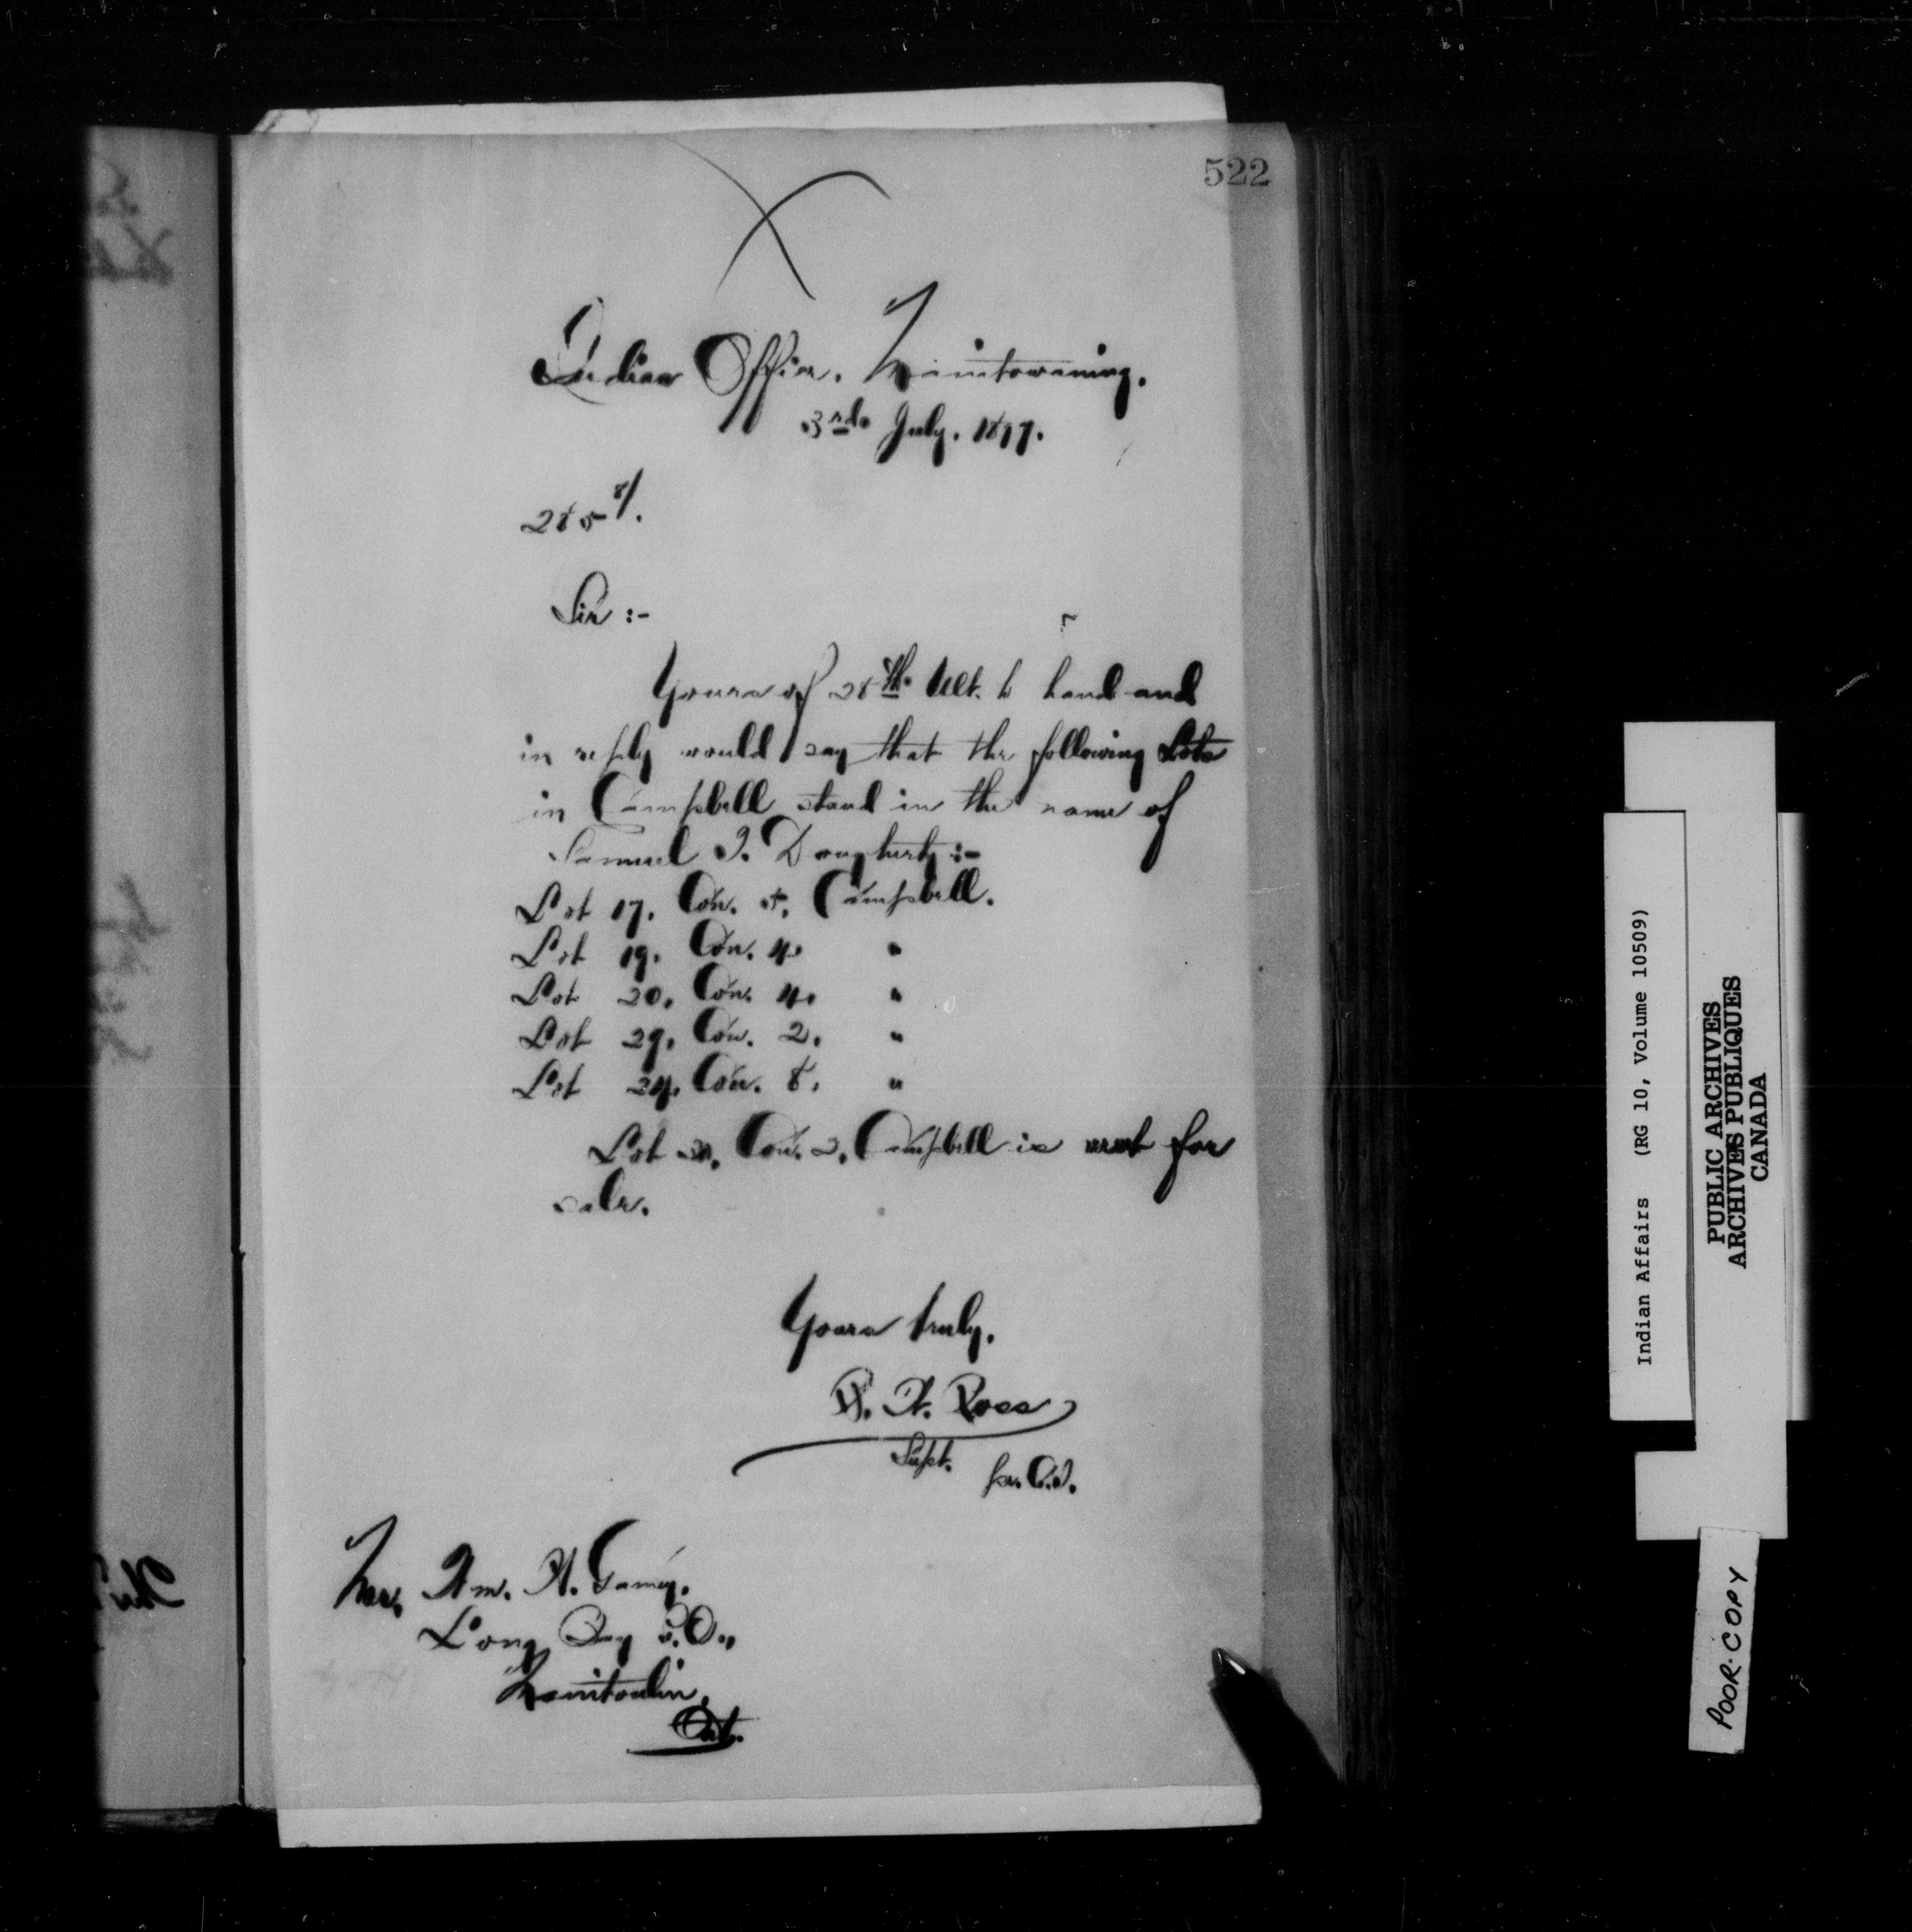 522
Indian Office, Manitowaning,
3rd July, 1897.
285
Sir :-
Yours of 28th Ult. to hand and
in reply would say that the following Lots
in Campbell stand in the name of
Samuel I. Dougherty :-
Lot 17, Con. 5, Campbell.
Lot 19, Con. 4, "
Lot 20, Con. 4, "
Lot 29, Con. 2, "
Lot 24, Con. 8, "
Lot Con. 2, Campbell is not for
sale.
Yours truly,
B. W. Ross
Supt.
per.
Mr. Wm. H. Gamey,
Long Bay P.O.,
Manitoulin,
Ont.
Indian Affairs (RG 10, Volume 10509)
PUBLIC ARCHIVES
ARCHIVES PUBLIQUES
CANADA
POOR COPY